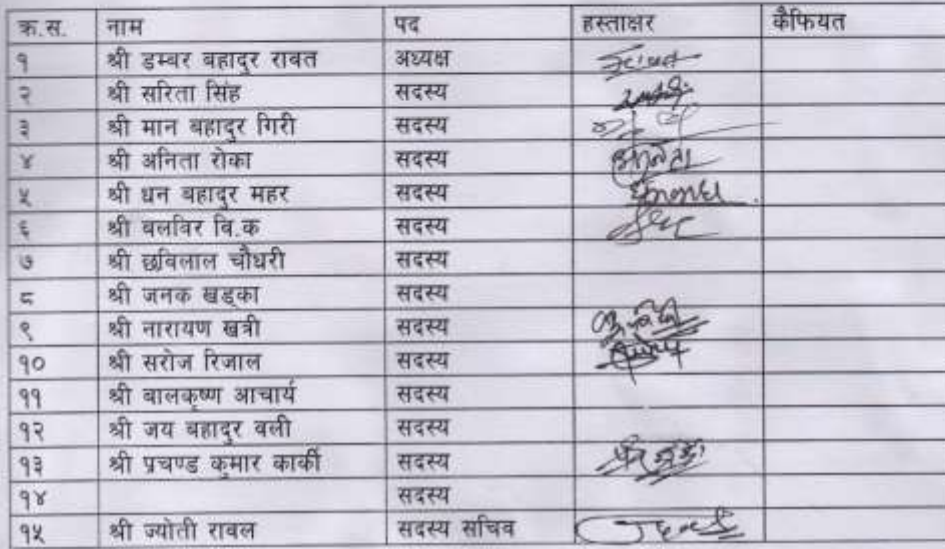 क्र.स. नाम पद हस्ताक्षर कैफियत
१ श्री डम्बर बहादुर रावत अध्यक्ष
२ श्री सरिता सिंह सदस्य
३ श्री मान बहादुर गिरी सदस्य
४ श्री अनिता रोका सदस्य
५ श्री धन बहादुर महर सदस्य
६ श्री बलविर बि.क सदस्य
७ श्री छविलाल चौधरी सदस्य
८ श्री जनक खड्का सदस्य
९ श्री नारायण खत्री सदस्य
१० श्री सरोज रिजाल सदस्य
११ श्री बालकृष्ण आचार्य सदस्य
१२ श्री जय बहादुर वली सदस्य
१३ श्री प्रचण्ड कुमार कार्की सदस्य
१४ सदस्य
१५ श्री ज्योती रावल सदस्य सचिव